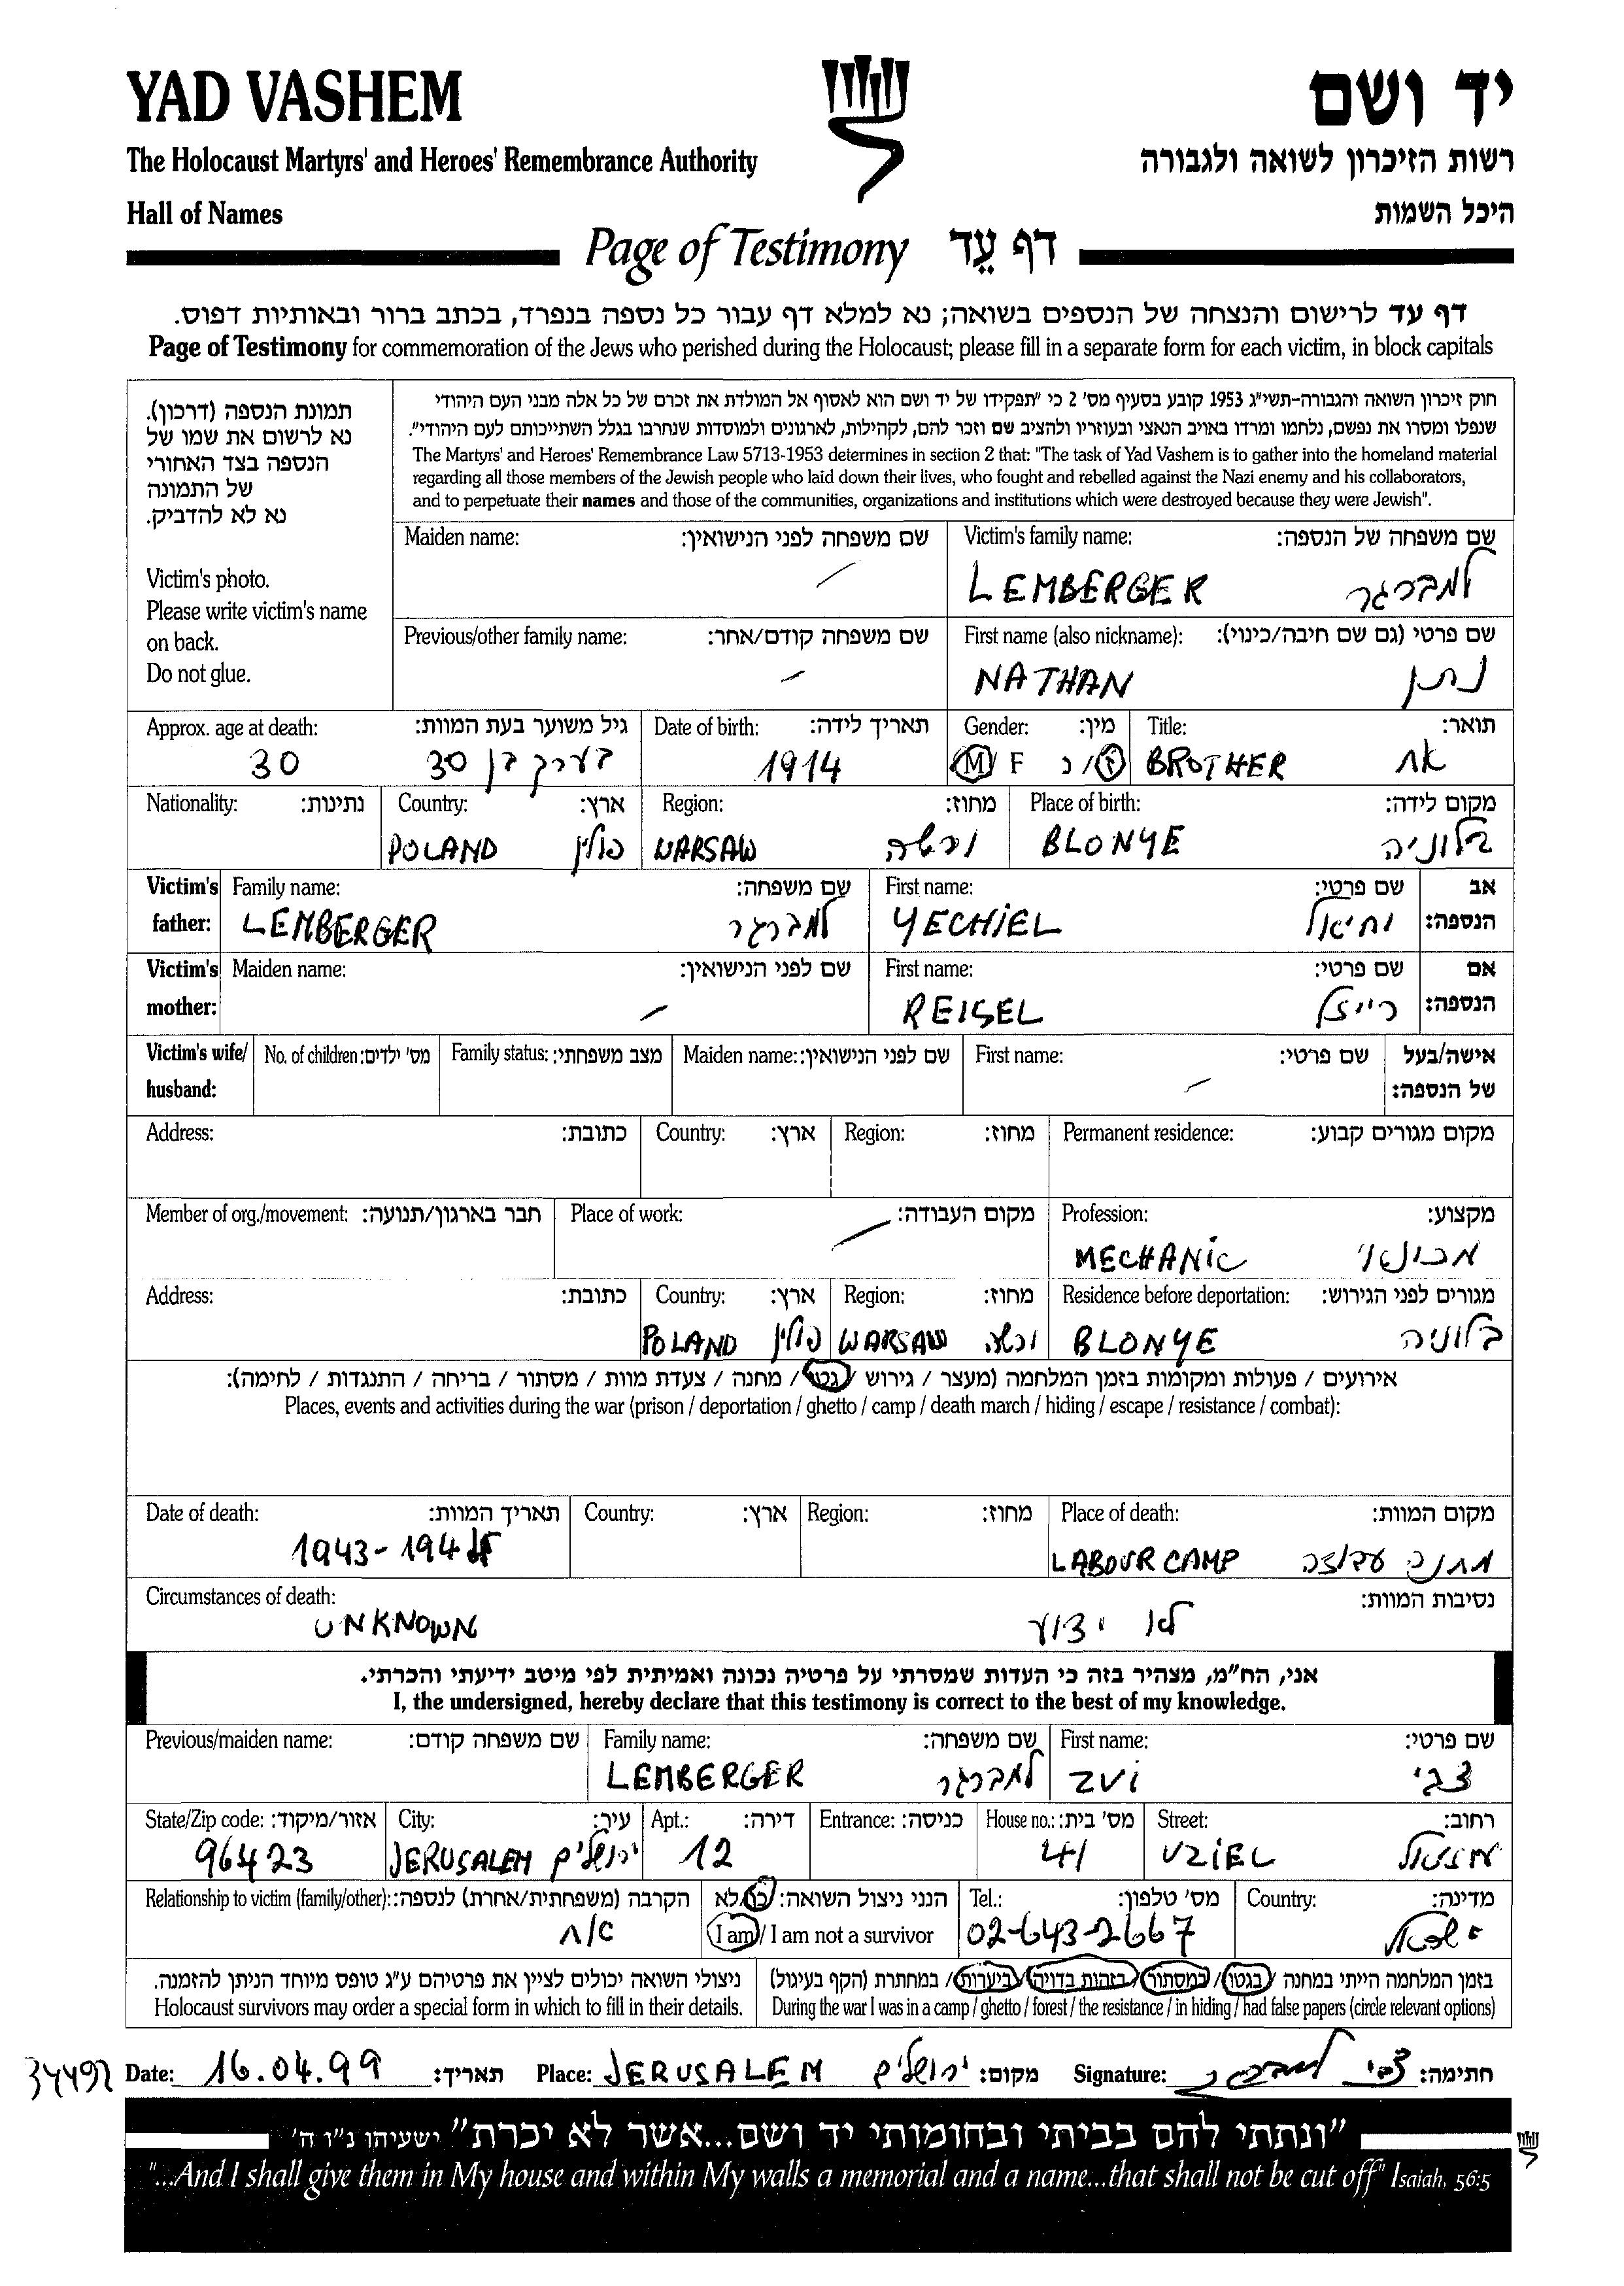 YAD VASHEM יד ושם
The Holocaust Martyrs' and Heroes' Remembrance Authority רשות הזיכרון לשואה ולגבורה
Hall of Names היכל השמות
Page of Testimony דף עֵד
דף עד לרישום והנצחה של הנספים בשואה; נא למלא דף עבור כל נספה בנפרד, בכתב ברור ובאותיות דפוס.
Page of Testimony for commemoration of the Jews who perished during the Holocaust; please fill in a separate form for each victim, in block capitals
תמונת הנספה (דרכון).
נא לרשום את שמו של
הנספה בצד האחורי
של התמונה
נא לא להדביק.
Victim's photo.
Please write victim's name
on back.
Do not glue.
חוק זיכרון השואה והגבורה-תשי"ג 1953 קובע בסעיף מס' 2 כי "תפקידו של יד ושם הוא לאסוף אל המולדת את זכרם של כל אלה מבני העם היהודי
שנפלו ומסרו את נפשם, נלחמו ומרדו באויב הנאצי ובעוזריו ולהציב שם וזכר להם, לקהילות, לארגונים ולמוסדות שנחרבו בגלל השתייכותם לעם היהודי".
The Martyrs' and Heroes' Remembrance Law 5713-1953 determines in section 2 that: "The task of Yad Vashem is to gather into the homeland material
regarding all those members of the Jewish people who laid down their lives, who fought and rebelled against the Nazi enemy and his collaborators,
and to perpetuate their names and those of the communities, organizations and institutions which were destroyed because they were Jewish".
Maiden name: שם משפחה לפני הנישואין: Victim's family name: שם משפחה של הנספה:
LEMBERGER למברגר
Previous/other family name: שם משפחה קודם/אחר: First name (also nickname): שם פרטי (גם שם חיבה/כינוי):
NATHAN נתן
Approx. age at death: גיל משוער בעת המוות: Date of birth: תאריך לידה: Gender: מין: Title: תואר:
30 בערך בן 30 1914 M / F ז / נ BROTHER אח
Nationality: נתינות: Country: ארץ: Region: מחוז: Place of birth: מקום לידה:
POLAND פולין WARSAW ורשה BLONYE בלוניה
Victim's father: Family name: שם משפחה: First name: שם פרטי: אב הנספה:
LEMBERGER למברגר YECHIEL יחיאל
Victim's mother: Maiden name: שם לפני הנישואין: First name: שם פרטי: אם הנספה:
REISEL רייזל
Victim's wife/ husband: No. of children: מס' ילדים: Family status: מצב משפחתי: Maiden name: שם לפני הנישואין: First name: שם פרטי: אישה/בעל של הנספה:
Address: כתובת: Country: ארץ: Region: מחוז: Permanent residence: מקום מגורים קבוע:
Member of org./movement: חבר בארגון/תנועה: Place of work: מקום העבודה: Profession: מקצוע:
MECHANIC מכונאי
Address: כתובת: Country: ארץ: Region: מחוז: Residence before deportation: מגורים לפני הגירוש:
POLAND פולין WARSAW ורשה BLONYE בלוניה
אירועים / פעולות ומקומות בזמן המלחמה (מעצר / גירוש / גטו / מחנה / צעדת מוות / מסתור / בריחה / התנגדות / לחימה):
Places, events and activities during the war (prison / deportation / ghetto / camp / death march / hiding / escape / resistance / combat):
Date of death: תאריך המוות: Country: ארץ: Region: מחוז: Place of death: מקום המוות:
1943-1944 LABOUR CAMP מחנה עבודה
Circumstances of death: נסיבות המוות:
UNKNOWN לא ידוע
אני, הח"מ, מצהיר בזה כי העדות שמסרתי על פרטיה נכונה ואמיתית לפי מיטב ידיעתי והכרתי.
I, the undersigned, hereby declare that this testimony is correct to the best of my knowledge.
Previous/maiden name: שם משפחה קודם: Family name: שם משפחה: First name: שם פרטי:
LEMBERGER למברגר ZVI צבי
State/Zip code: אזור/מיקוד: City: עיר: Apt.: דירה: Entrance: כניסה: House no.: מס' בית: Street: רחוב:
96423 JERUSALEM ירושלים 12 41 UZIEL עוזיאל
Relationship to victim (family/other): הקרבה (משפחתית/אחרת) לנספה: הנני ניצול השואה: כן/לא Tel.: מס' טלפון: Country: מדינה:
אח I am / I am not a survivor 02-643-2667 ישראל
ניצולי השואה יכולים לציין את פרטיהם ע"ג טופס מיוחד הניתן להזמנה. בזמן המלחמה הייתי במחנה / בגטו / במסתור / בזהות בדויה / ביערות / במחתרת (הקף בעיגול)
Holocaust survivors may order a special form in which to fill in their details. During the war I was in a camp / ghetto / forest / the resistance / in hiding / had false papers (circle relevant options)
34492 Date: 16.04.99 תאריך: Place: JERUSALEM ירושלים מקום: Signature: צבי למברגר חתימה:
"ונתתי להם בביתי ובחומותי יד ושם...אשר לא יכרת" ישעיהו נ"ו ה'
"...And I shall give them in My house and within My walls a memorial and a name...that shall not be cut off" Isaiah, 56:5